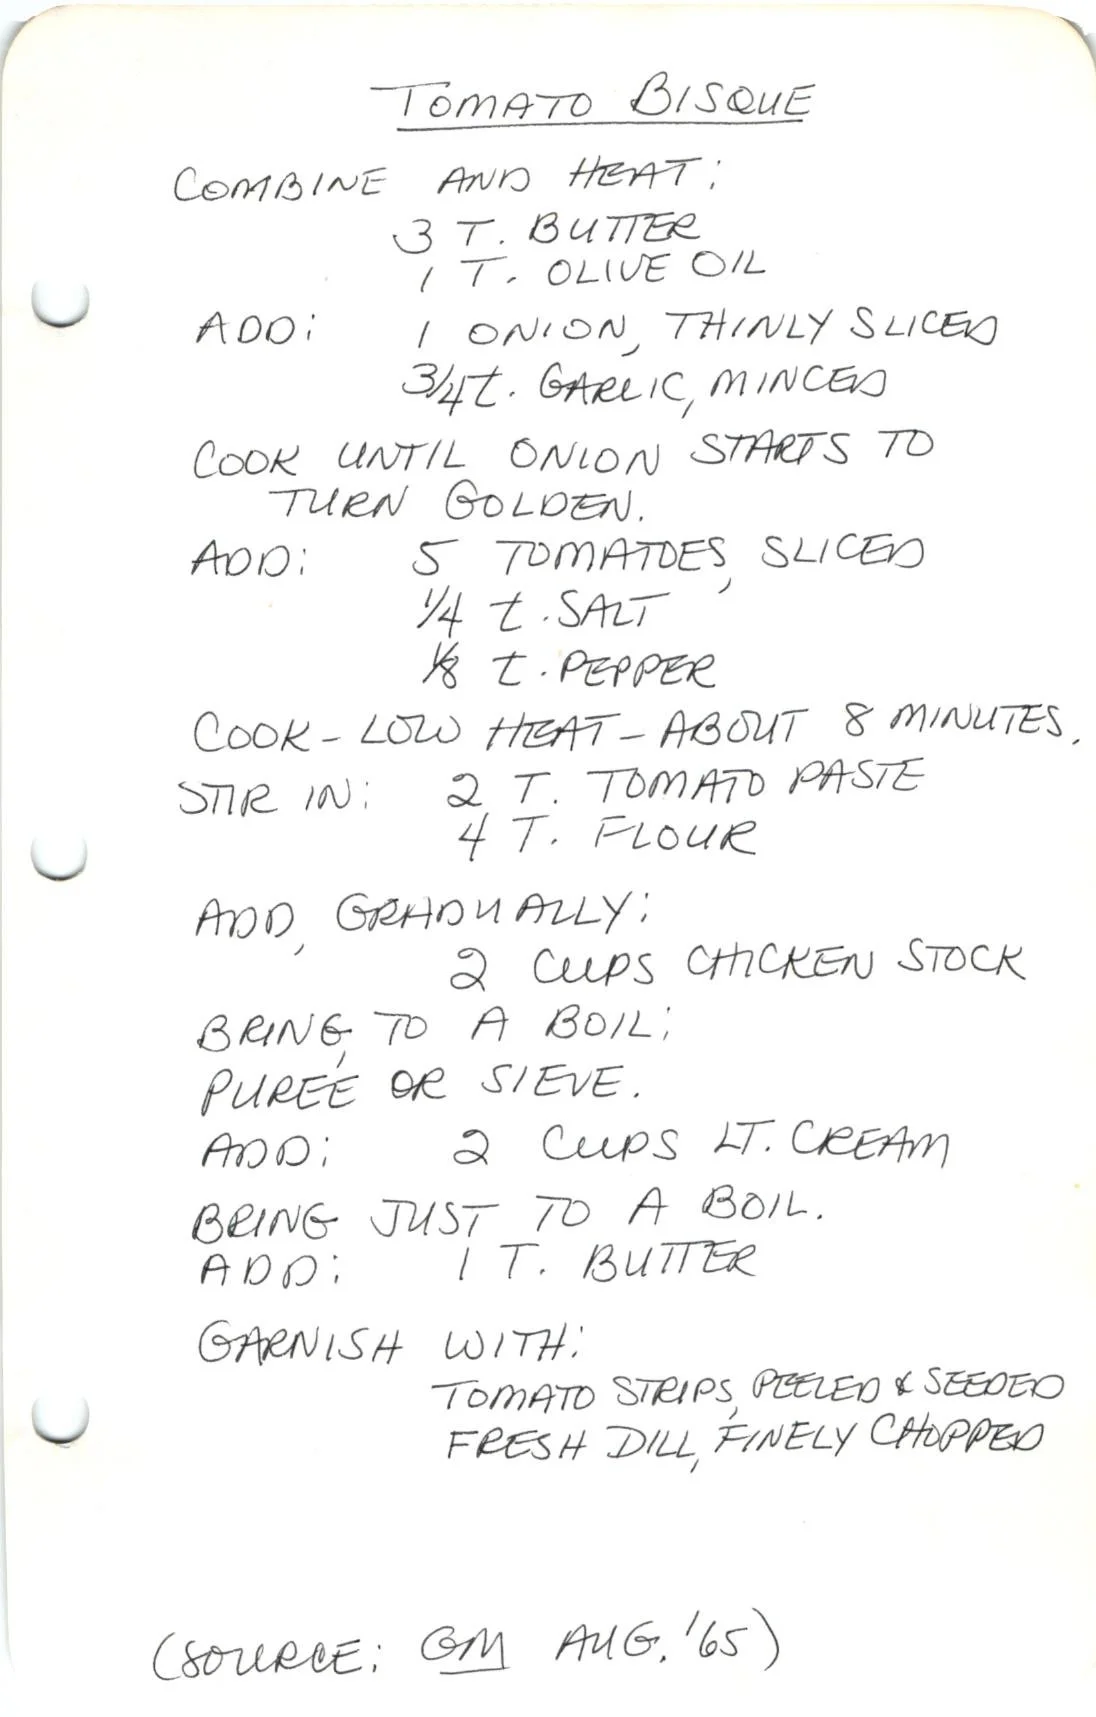 TOMATO BISQUE
COMBINE AND HEAT:
3 T. BUTTER
1 T. OLIVE OIL
ADD: 1 ONION, THINLY SLICED
3/4 t. GARLIC, MINCED
COOK UNTIL ONION STARTS TO
TURN GOLDEN.
ADD: 5 TOMATOES, SLICED
1/4 t. SALT
1/8 t. PEPPER
COOK - LOW HEAT - ABOUT 8 MINUTES.
STIR IN: 2 T. TOMATO PASTE
4 T. FLOUR
ADD, GRADUALLY:
2 CUPS CHICKEN STOCK
BRING TO A BOIL;
PURÉE OR SIEVE.
ADD: 2 CUPS LT. CREAM
BRING JUST TO A BOIL.
ADD: 1 T. BUTTER
GARNISH WITH:
TOMATO STRIPS, PEELED & SEEDED
FRESH DILL, FINELY CHOPPED
(SOURCE: GM AUG. '65)